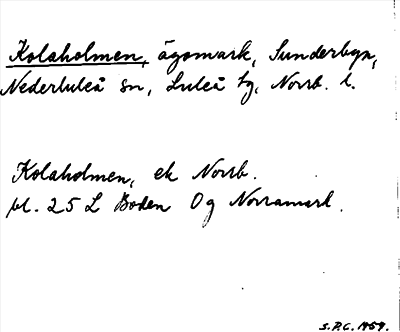 Kolaholmen, ägomark, Sunderbyn,
Nederluleå sn, Luleå tg, Norrb. l.
Kolaholmen, ek Norrb.
bl. 25 L Boden Og Norramark.
S.P.C. 1959.